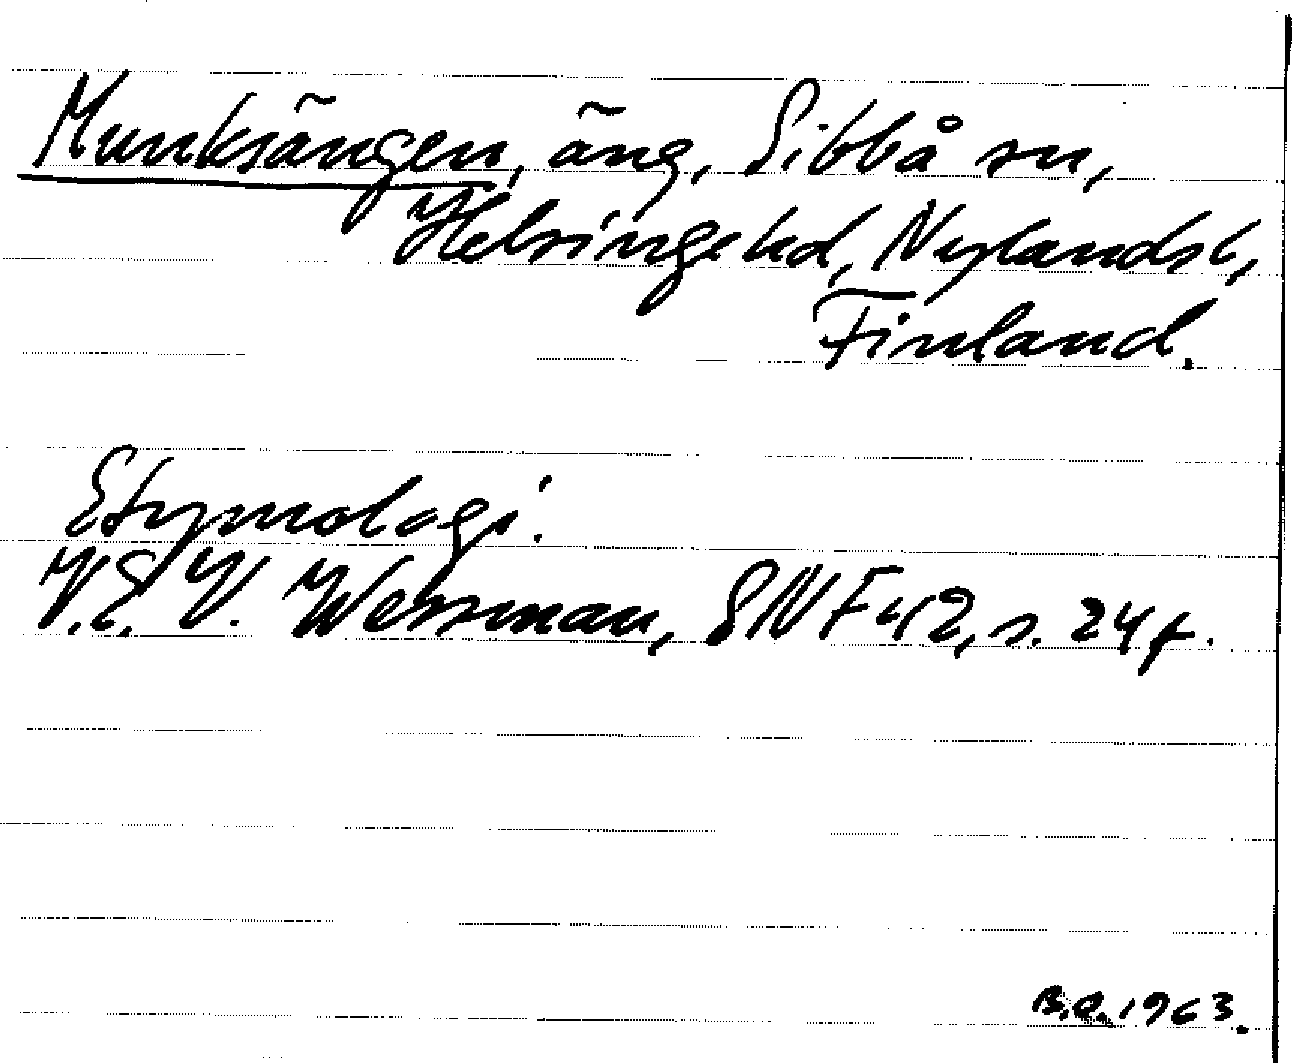 Munksängen, äng, Sibbå sn,
Helsinge hd, Nylands l,
Finland.
Etymologi.
V.E.V. Wessman, SNF 42, s. 24 f.
1963.